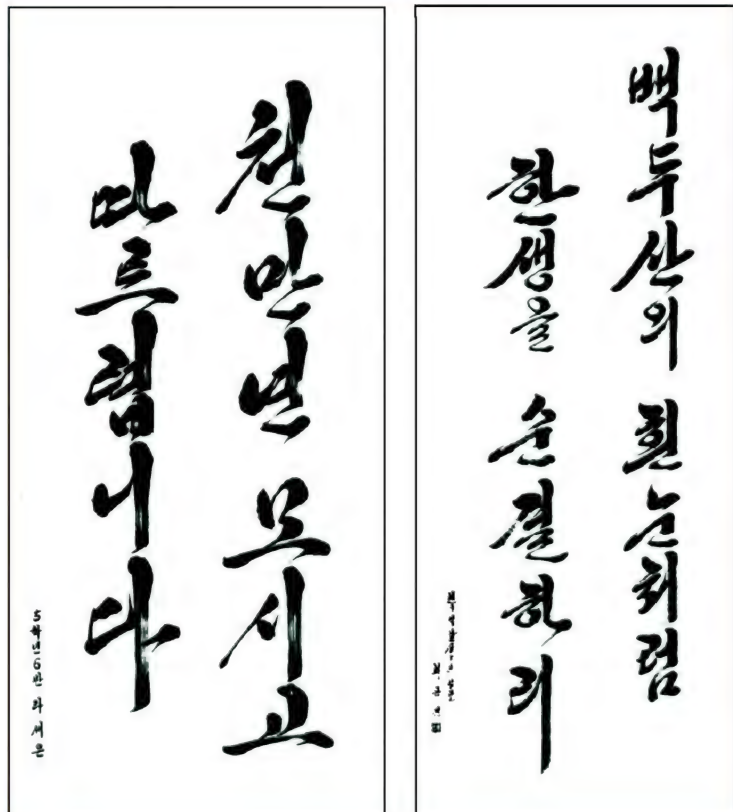 천만년 모시고
따르렵니다
5학년6반
백두산의 흰눈처럼
한생을 순결하리